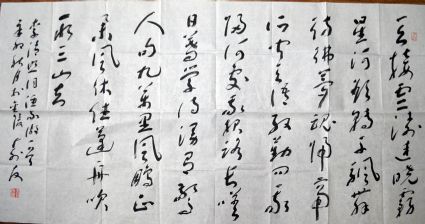 天接雲濤連曉霧
星河欲轉千帆舞
彷彿夢魂歸帝
所聞天語殷勤問我
歸何處我報路長嗟
日暮學詩謾有驚
人句九萬里風鵬正
舉風休住蓬舟吹
取三山去
李清照詞漁家傲一首
秋月於金陵